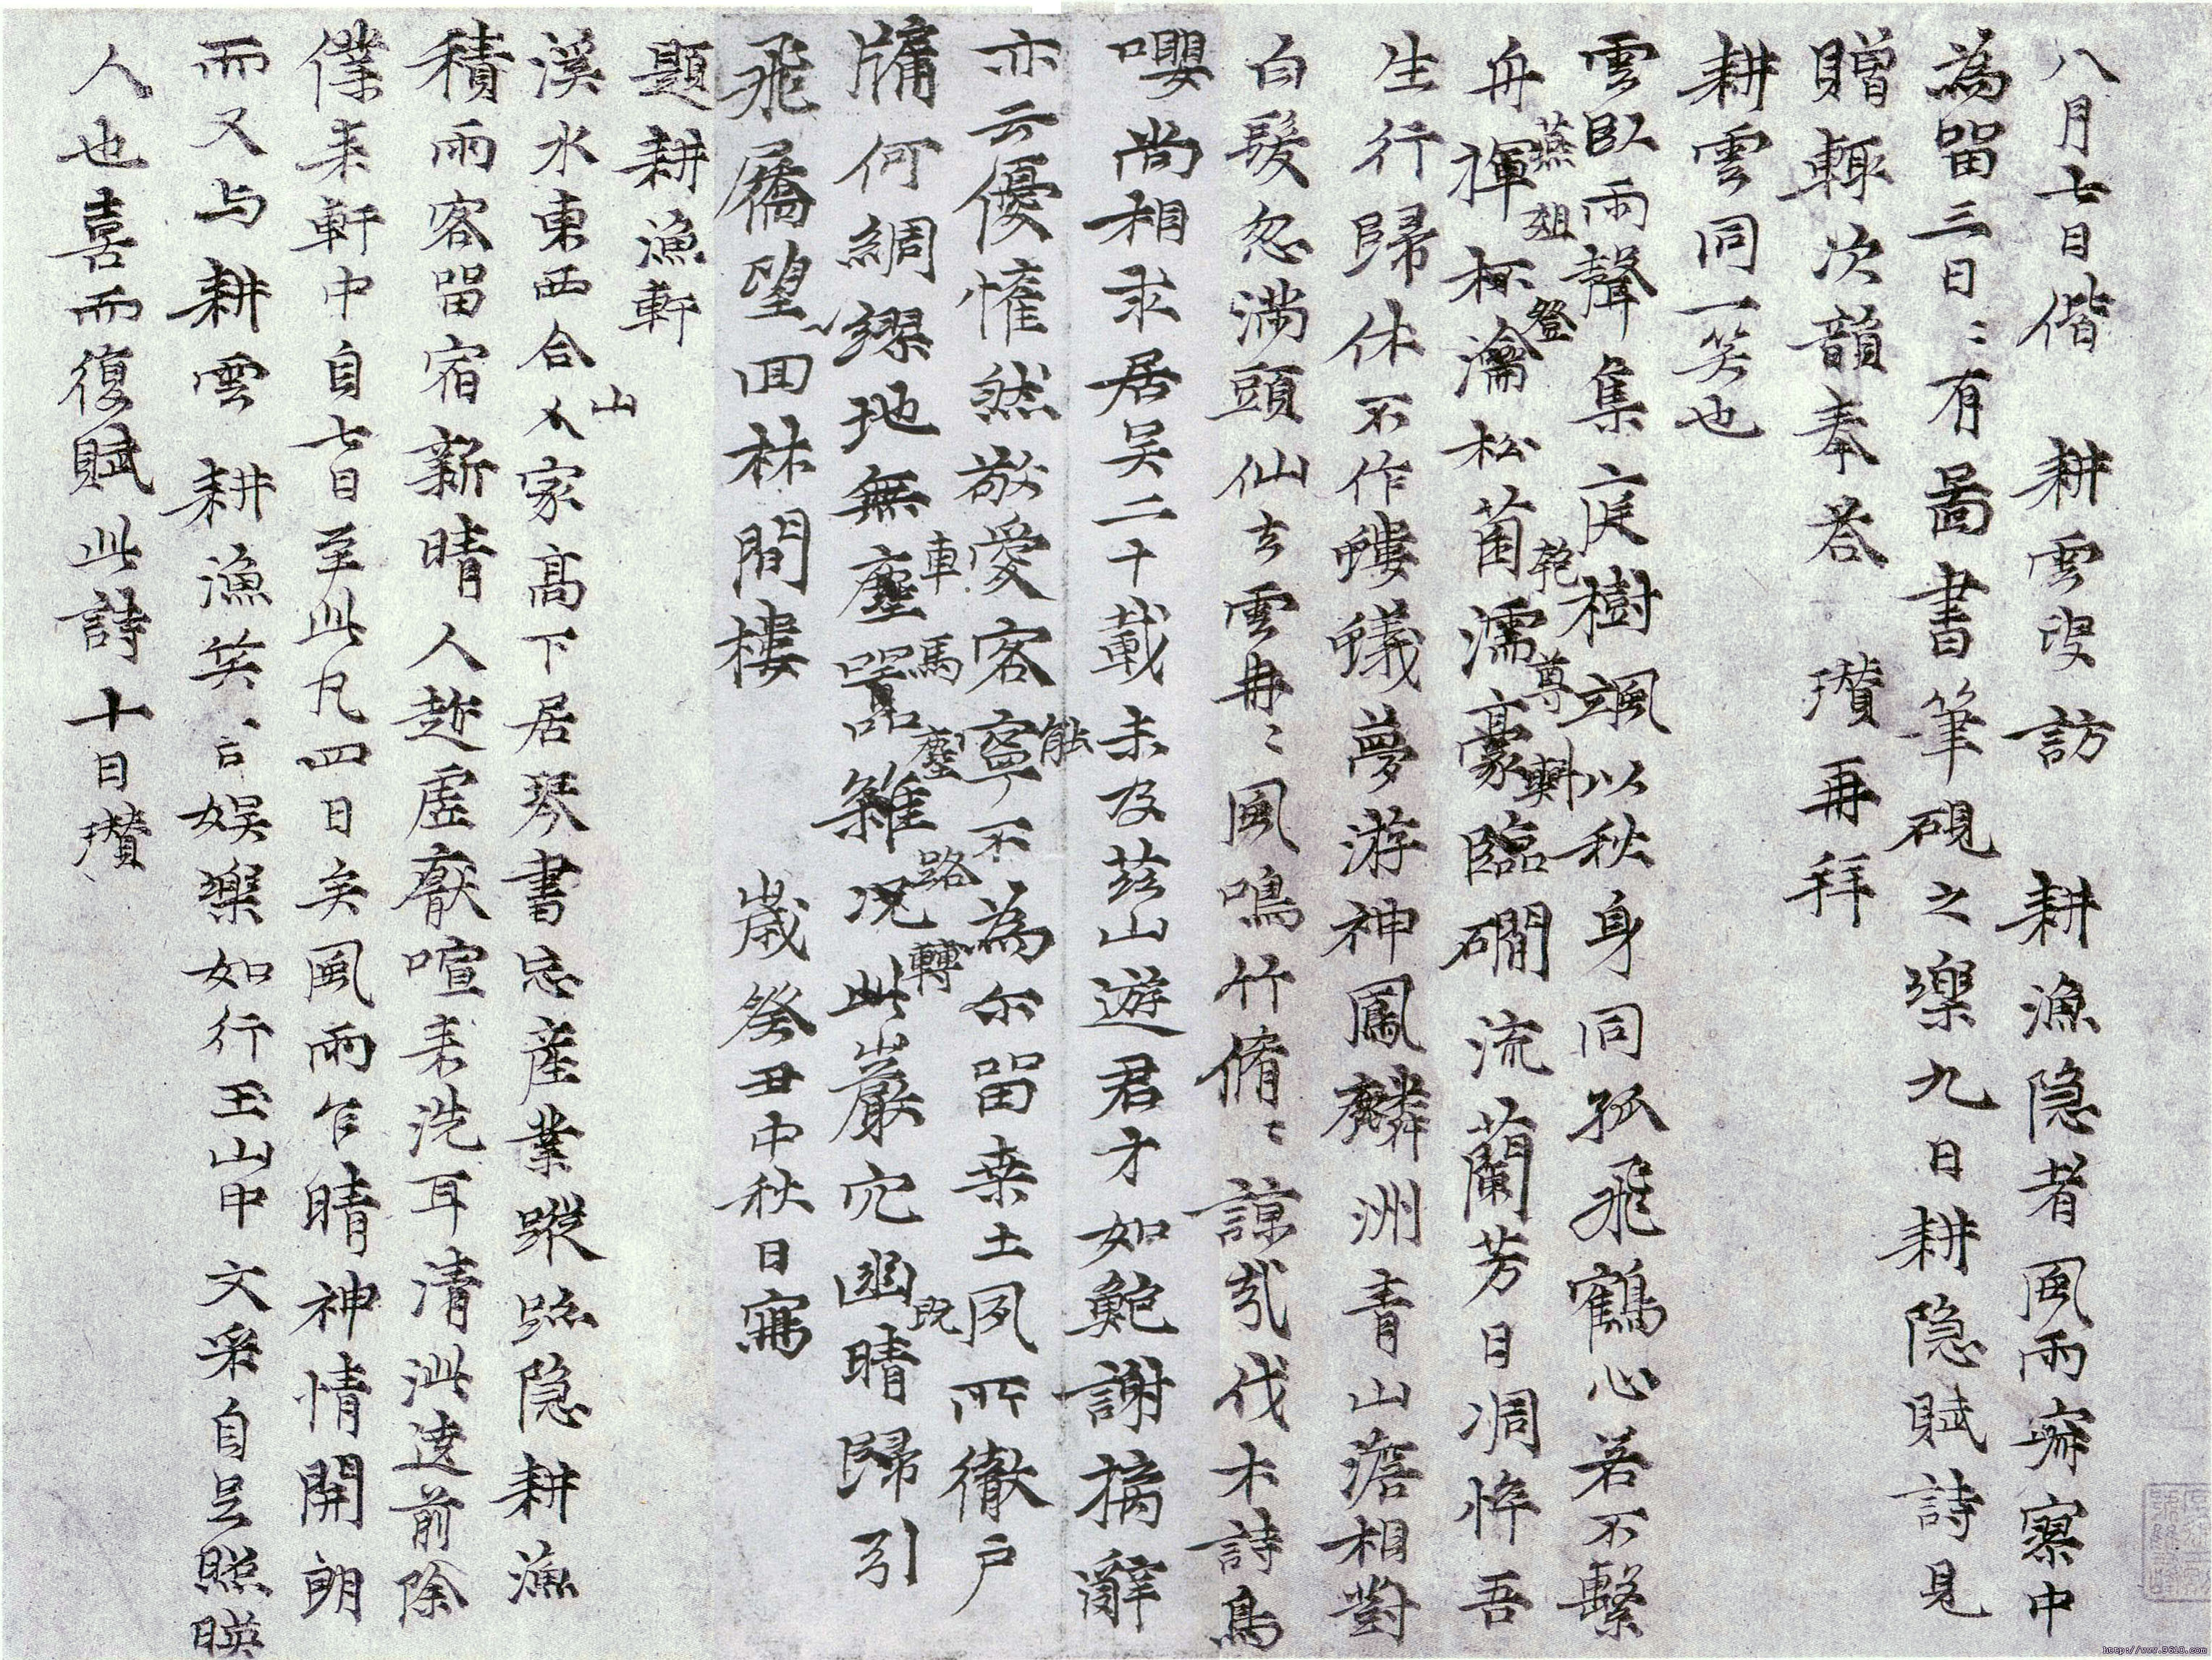 八月七日偕 耕雲叟訪 耕漁隐者風雨寂寥中
為留三日〻有啚書筆硯之樂九日耕隐賦詩見
贈輙次韻奉荅 瓚再拜
耕雲同一笑也
雲臥雨聲集庭樹颯以秋身同孤飛鶴心若不繫
舟褌杯瀹松菌濡豪臨磵流蘭芳日凋悴吾
燕俎登 乾尊斟
生行歸休不作螻蟻夢游神鳳麟洲青山澹相對
白髮忽滿頭仙去雲冉〻風鳴竹脩〻諒哉伐木詩鳥
嚶尚相求居吳二十載未及茲山遊君才如鮑謝摛辭
亦云優惟然敬愛客寧不為尒留桒土夙所徹戶
能
牖何綢繆地無塵囂雜況此巖穴幽晴歸引
車馬塵路轉既
飛屩望〻回林間樓 歲癸丑中秋日寫
題耕漁軒
溪水東西合人家高下居琴書忘產業蹤跡隐耕漁
山
積雨客留宿新晴人趂虛厭喧来洗耳清泚遶前除
僕来軒中自七日至此凡四日矣風雨乍晴神情開朗
而又与耕雲 耕漁笑〻言娱樂如行玉山中文采自足照暎
人也喜而復賦此詩十日瓚
http://www.9610.com